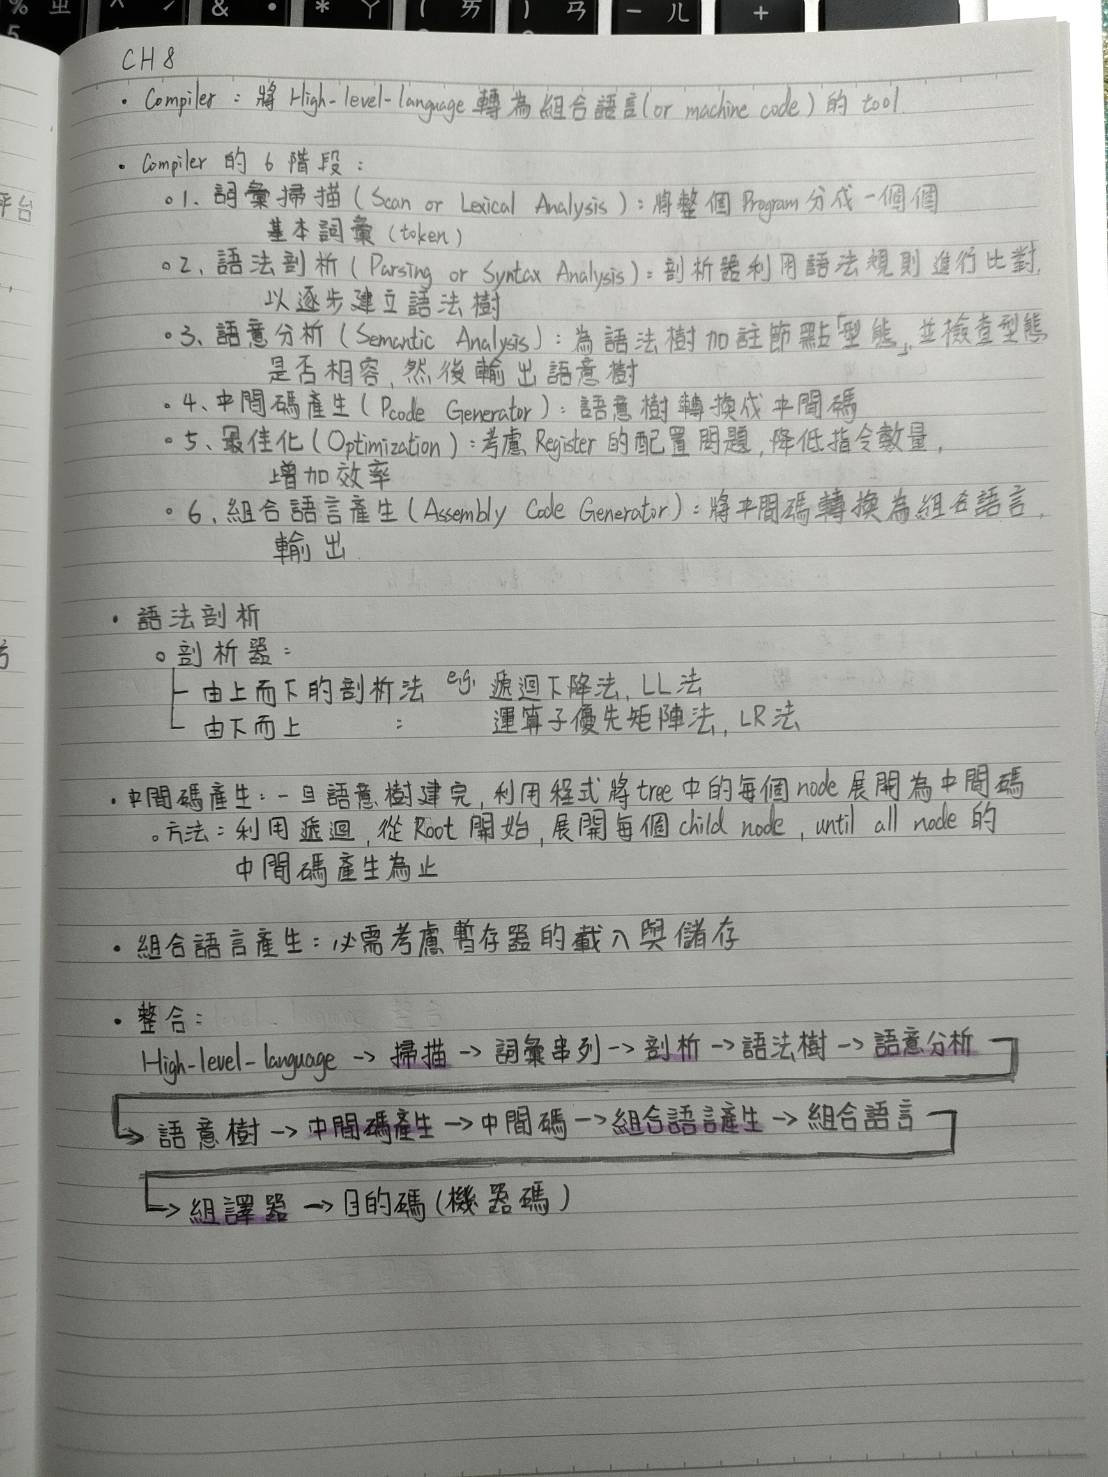 CH 8
· Compiler : 將 High-level-language 轉為組合語言(or machine code) 的 tool.
· Compiler 的 6 階段:
。1、詞彙掃描 (Scan or Lexical Analysis) : 將整個 Program 分成一個個
基本詞彙 (token)
。2、語法剖析 (Parsing or Syntax Analysis) : 剖析器利用語法規則進行比對,
以逐步建立語法樹
。3、語意分析 (Semantic Analysis) : 為語法樹加註節點「型態」, 並檢查型態
是否相容, 然後輸出語意樹
。4、中間碼產生 (Pcode Generator) : 語意樹轉換成中間碼
。5、最佳化 (Optimization) : 考慮 Register 的配置問題, 降低指令數量,
增加效率
。6、組合語言產生 (Assembly Code Generator) : 將中間碼轉換為組合語言,
輸出.
· 語法剖析
。剖析器:
├ 由上而下的剖析法 e.g. 遞迴下降法, LL 法
└ 由下而上 : 運算子優先矩陣法, LR 法
· 中間碼產生: 一旦語意樹建完, 利用程式將 tree 中的每個 node 展開為中間碼
。方法: 利用遞迴, 從 Root 開始, 展開每個 child node, until all node 的
中間碼產生為止
· 組合語言產生: 必需考慮暫存器的載入與儲存
· 整合:
High-level-language → 掃描 → 詞彙串列 → 剖析 → 語法樹 → 語意分析
→ 語意樹 → 中間碼產生 → 中間碼 → 組合語言產生 → 組合語言
→ 組譯器 → 目的碼 (機器碼)